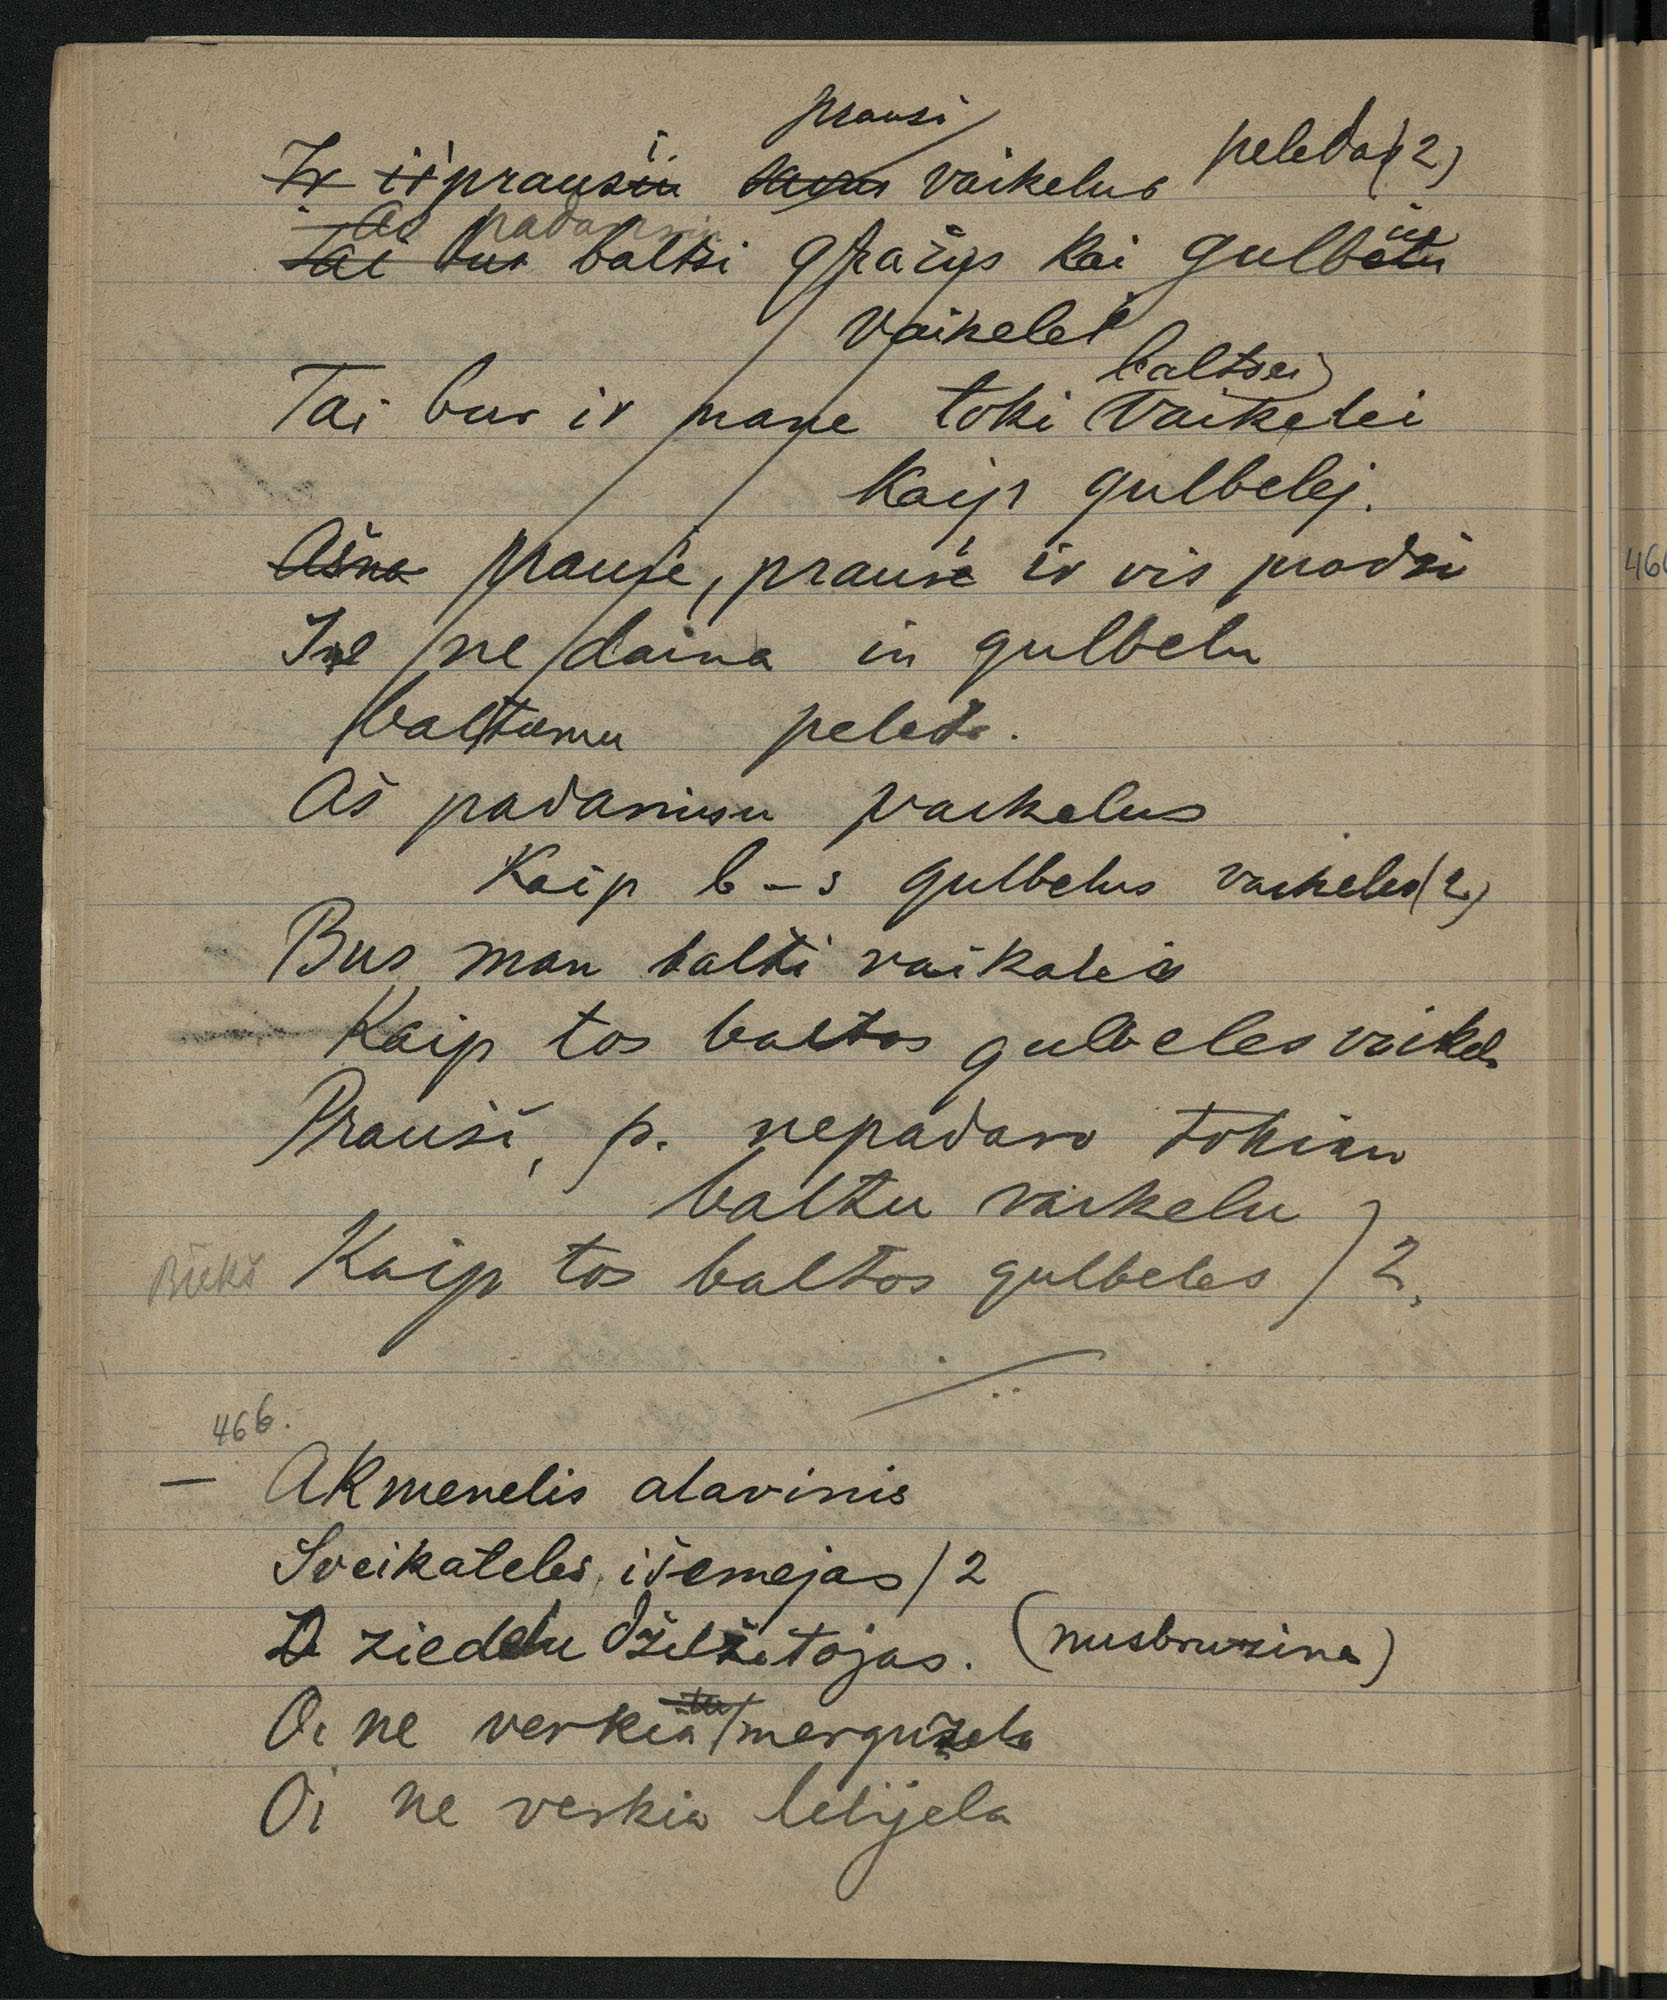 prausi
Ir iš prausiu savo vaikelus peleda (2)
Aš padarysiu
Tai bus baltsi gražus kai gulbetu
vaikelei
baltsei
Tai bus ir mane toki vaikelei
Kaip gulbelej.
Ašna prause, prause ir vis prodzi
Ine ne daina in gulbelu
baltumu peleda.
Aš padarusu vaikelus
Kaip b-s gulbelus vaikelus (2)
Bus man balti vaikalei
Kaip tos baltos gulbeles vaikel.
Prausi, p. nepadaro tokiu
baltu vaikelu
Kaip tos baltos gulbeles / 2.
466.
— Akmenelis alavinis
Sveikateles išemejas / 2
ziedelu džulžetojas. (nusbruzina)
Oi ne verkia merguzela
Oi ne verkia lelijela
466